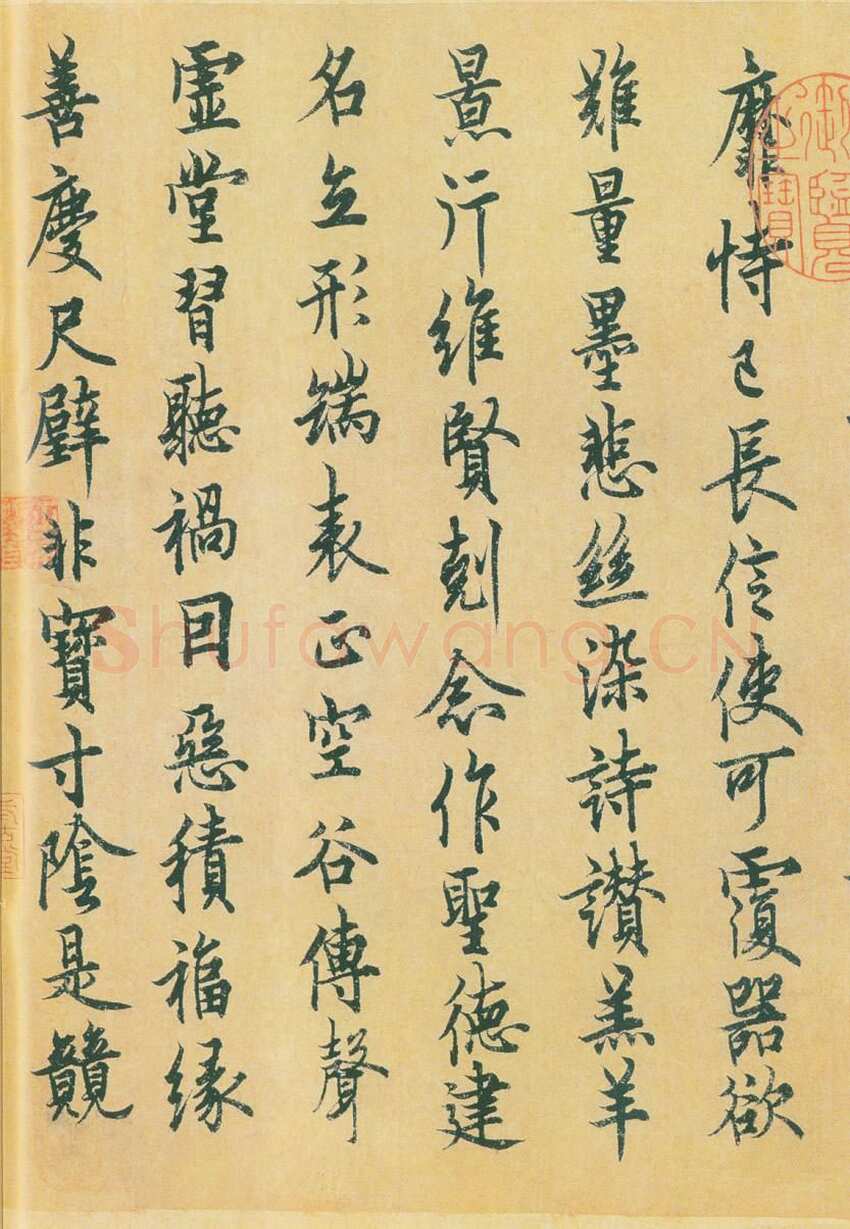 靡恃己長信使可覆器欲
難量墨悲絲染詩讚羔羊
景行維賢剋念作聖德建
名立形端表正空谷傳聲
虛堂習聽禍因惡積福緣
善慶尺璧非寶寸陰是競
Shufawang.CN